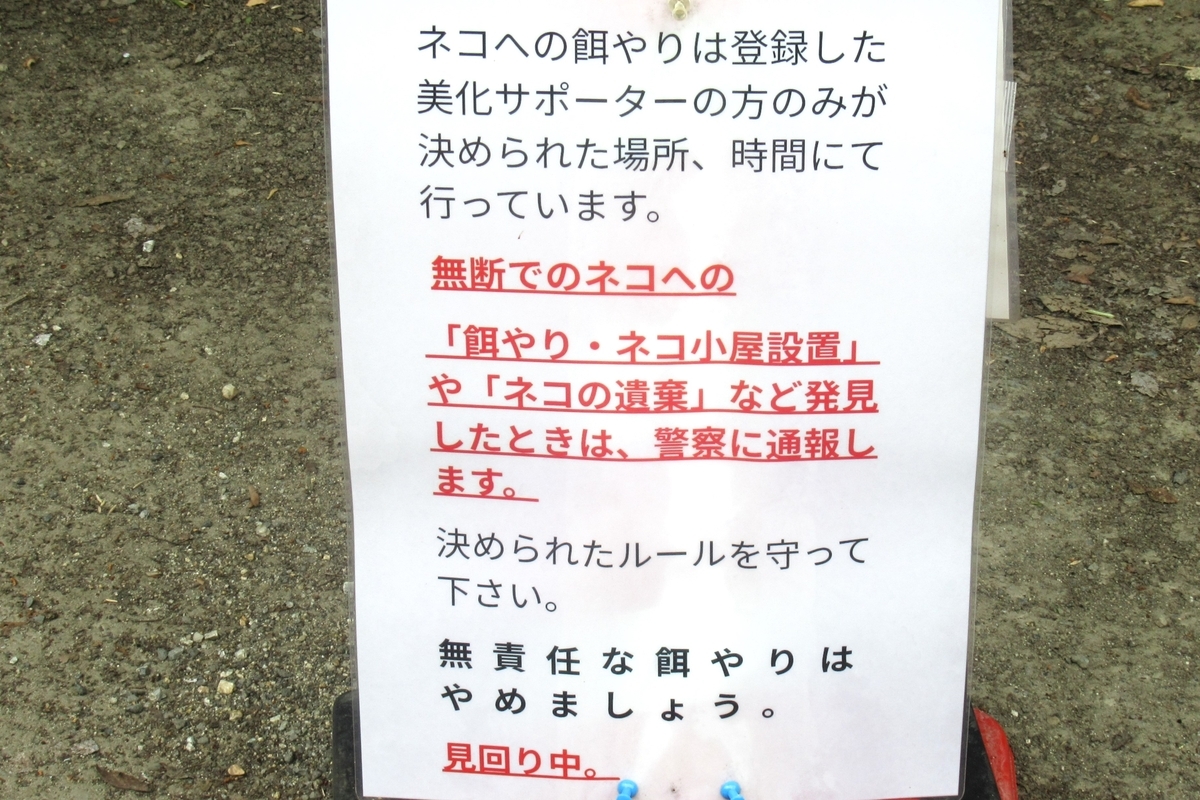 ネコへの餌やりは登録した
美化サポーターの方のみが
決められた場所、時間にて
行っています。
無断でのネコへの
「餌やり・ネコ小屋設置」
や「ネコの遺棄」など発見
したときは、警察に通報し
ます。
決められたルールを守って
下さい。
無責任な餌やりは
やめましょう。
見回り中。